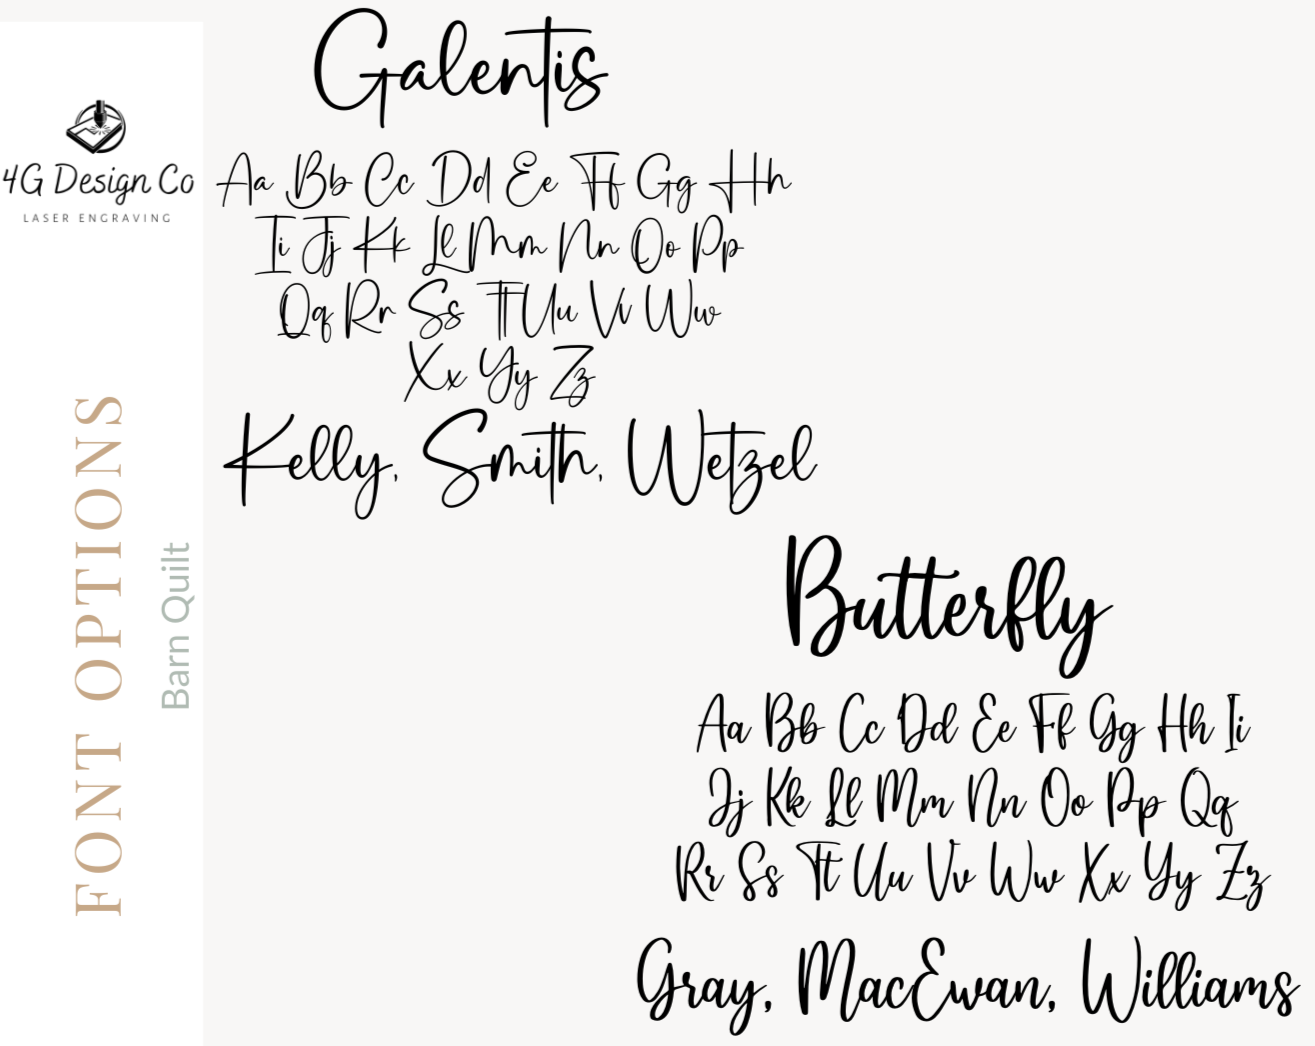 4G Design Co
LASER ENGRAVING
FONT OPTIONS
Barn Quilt
Galentis
Aa Bb Cc Dd Ee Ff Gg Hh
Ii Jj Kk Ll Mm Nn Oo Pp
Qq Rr Ss Tt Uu Vv Ww
Xx Yy Zz
Kelly, Smith, Wetzel
Butterfly
Aa Bb Cc Dd Ee Ff Gg Hh Ii
Jj Kk Ll Mm Nn Oo Pp Qq
Rr Ss Tt Uu Vv Ww Xx Yy Zz
Gray, MacEwan, Williams